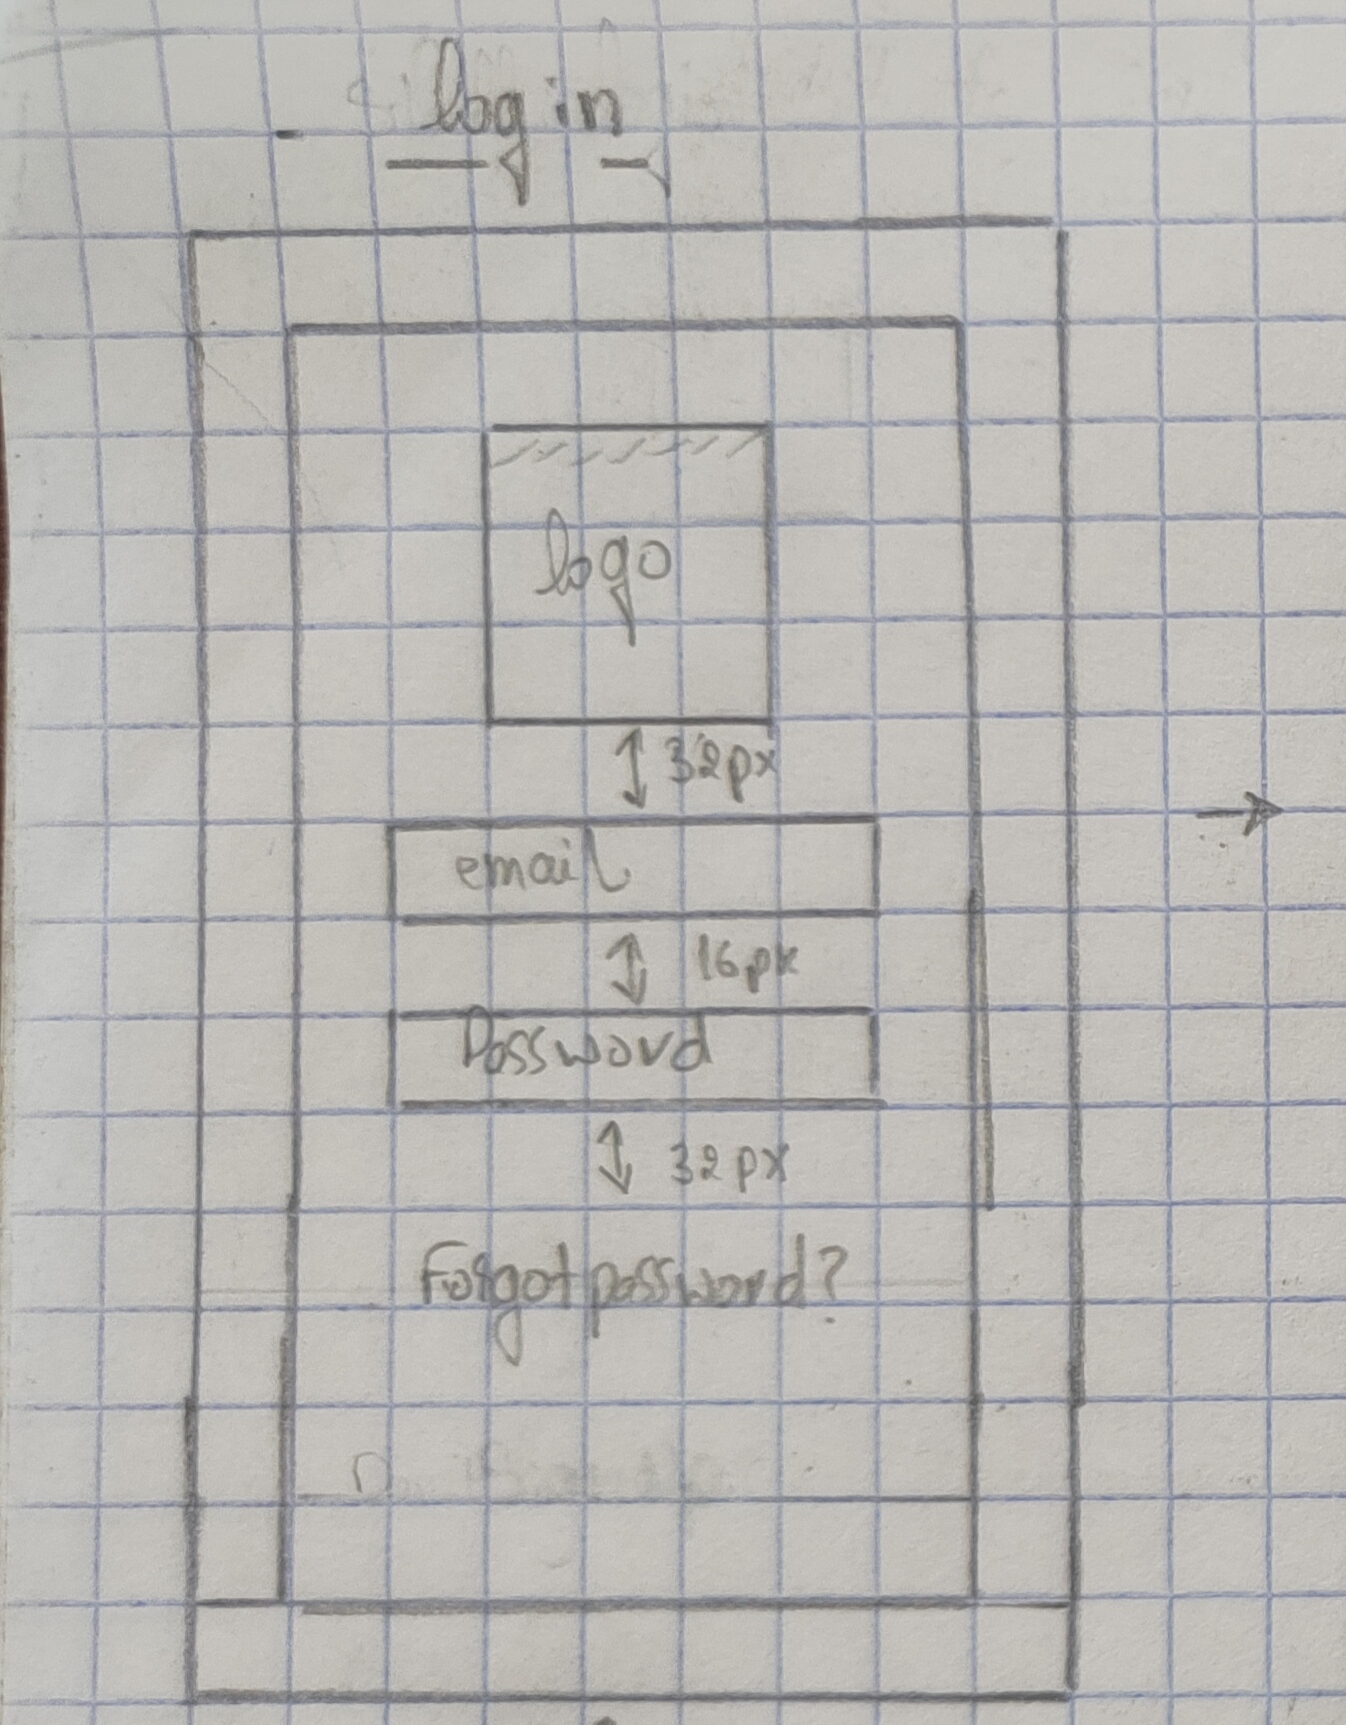 log in
logo
32px
email
16px
Password
32px
Forgot password?